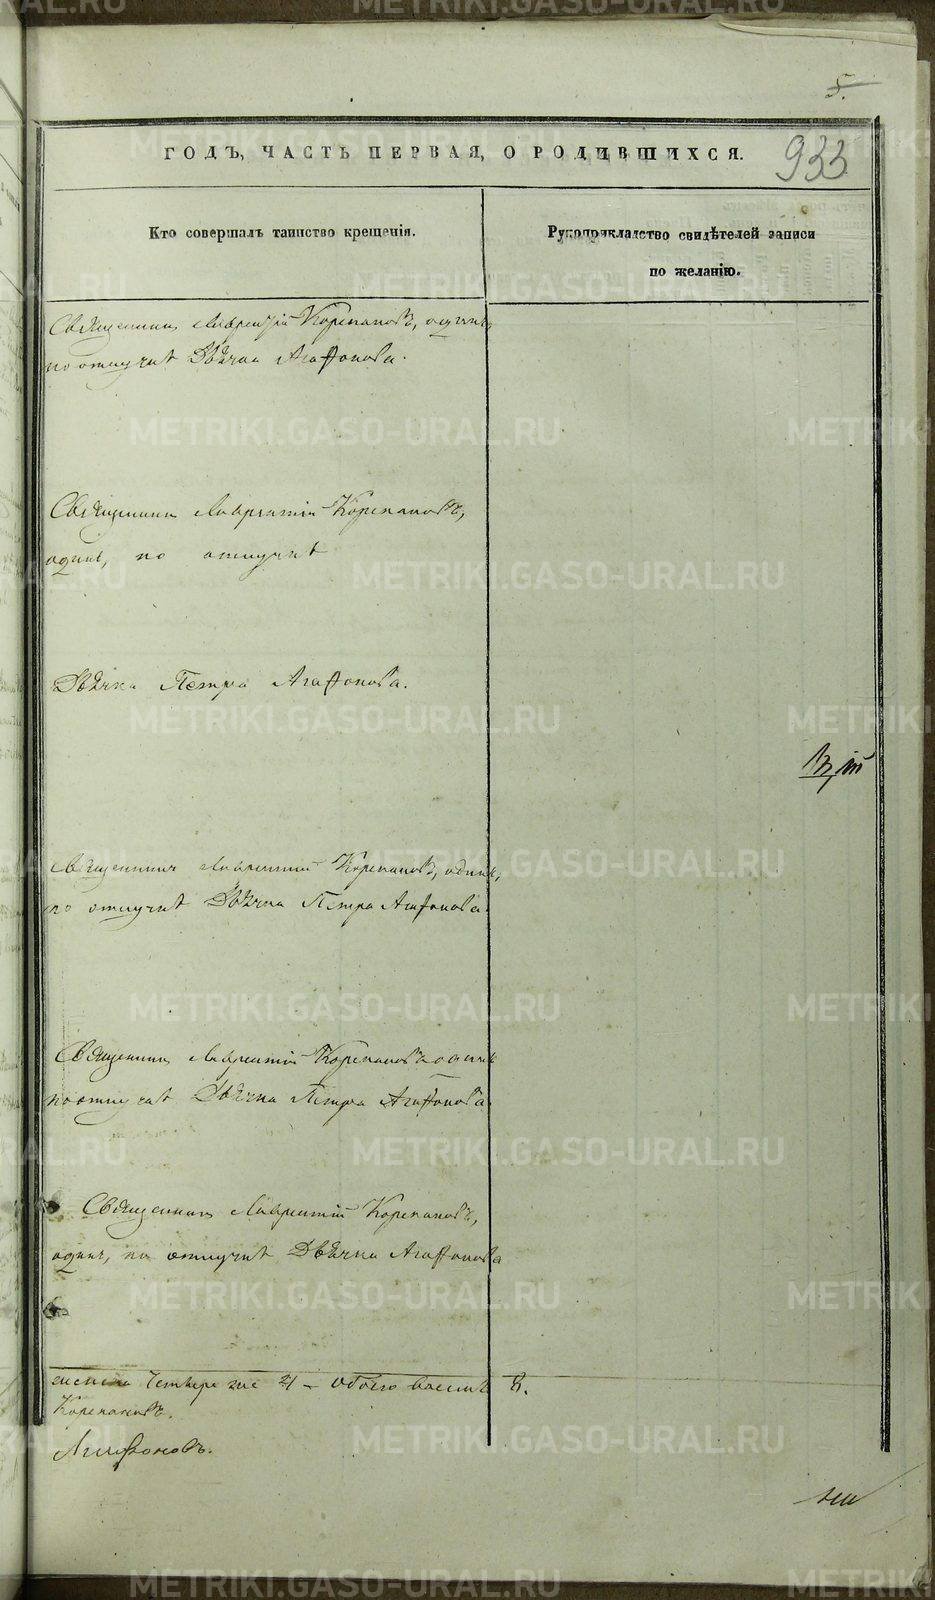 5.
933
ГОДЪ, ЧАСТЬ ПЕРВАЯ, О РОДИВШИХСЯ.
Кто совершалъ таинство крещенія.
Рукоприкладство свидѣтелей записи
по желанію.
Священникъ Лаврентій Корепановъ, одинъ,
по отлучкѣ Дьячка Агафонова.
Священникъ Лаврентій Корепановъ,
одинъ, по отлучкѣ
Дьячка Петра Агафонова.
Священникъ Лаврентій Корепановъ, одинъ,
по отлучкѣ Дьячка Петра Агафонова.
Священникъ Лаврентій Корепановъ одинъ
по отлучкѣ Дьячка Петра Агафонова.
Священникъ Лаврентій Корепановъ,
одинъ, по отлучкѣ Дьячка Агафонова
четверо 4 – обоего 8.
Корепановъ.
Агафоновъ.
METRIKI.GASO-URAL.RU